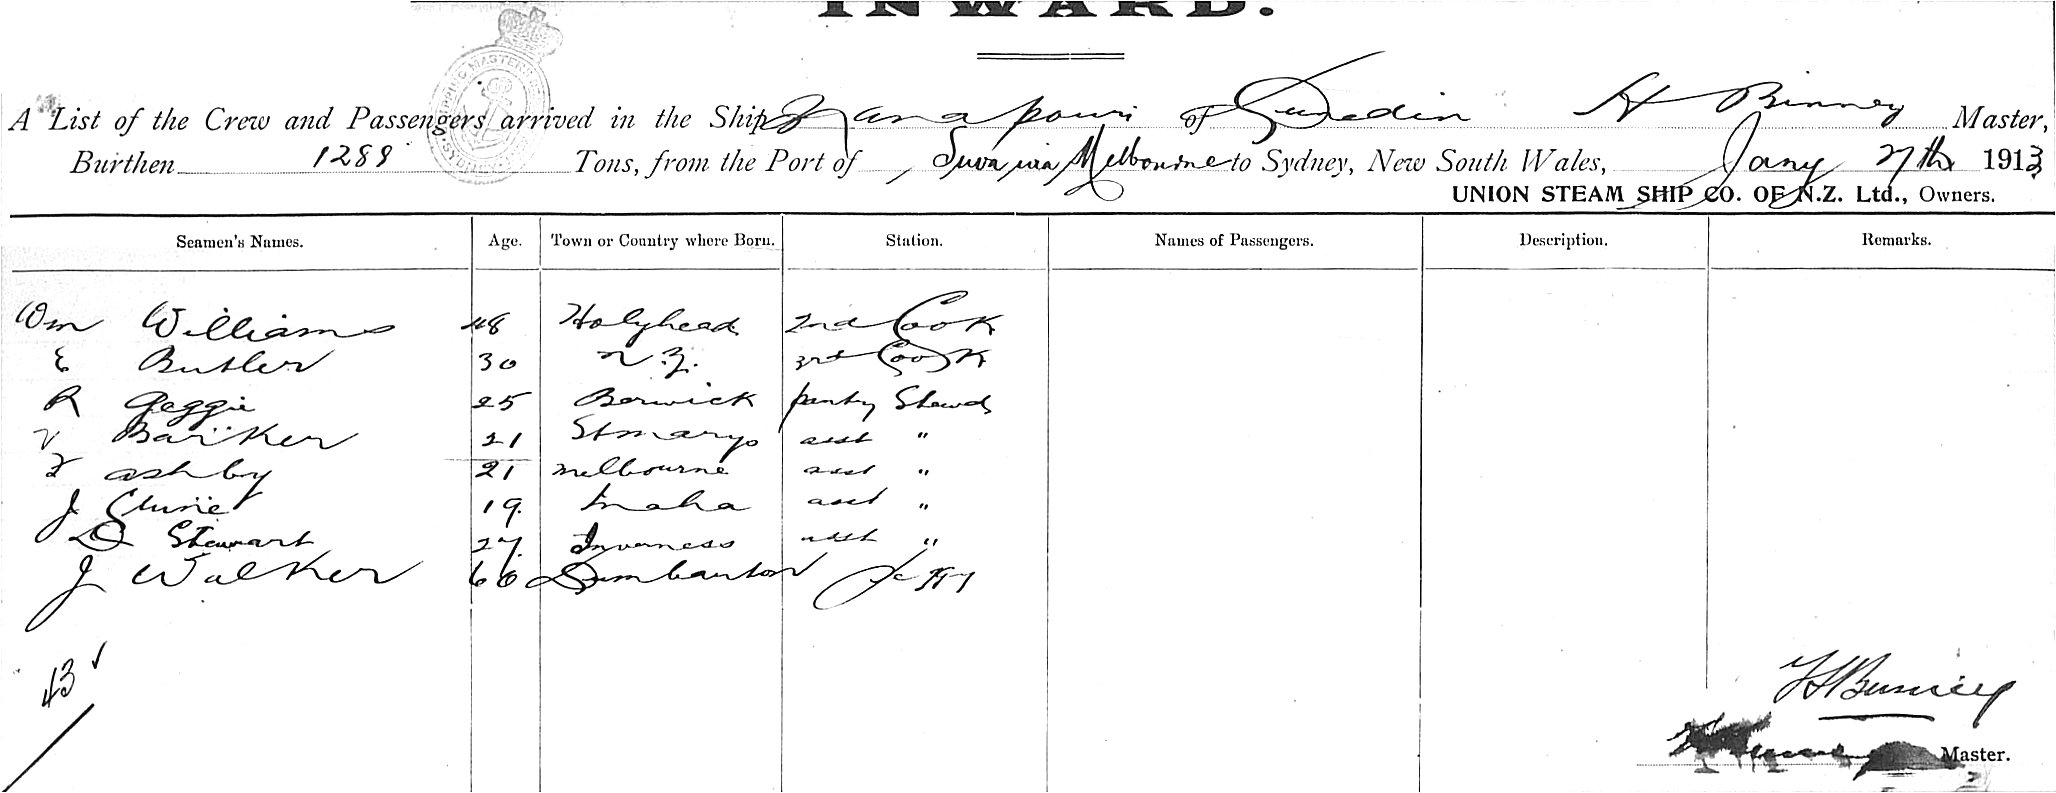 INWARD.
A List of the Crew and Passengers arrived in the Ship Manapouri of Dunedin H Binney Master,
Burthen 1289 Tons, from the Port of Suva via Melbourne to Sydney, New South Wales, Jany 27th 1913
UNION STEAM SHIP CO. OF N.Z. Ltd., Owners.
Seamen's Names. Age. Town or Country where Born. Station. Names of Passengers. Description. Remarks.
Wm Williams 48 Holyhead 2nd Cook
E Butler 30 N.Z. 3rd Cook
R Geggie 25 Berwick pantry Stewd
V Barker 21 St marys asst "
F ashby 21 melbourne asst "
J Clunie 19 Omaha asst "
D Stewart 27 Inverness asst "
J Walker 60 Dumbarton
43
H Binney
Master.